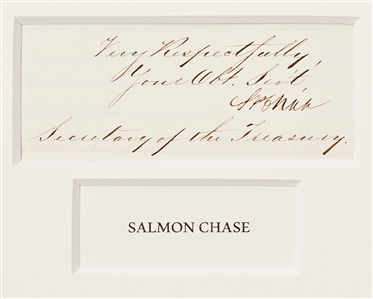 Very Respectfully,
Your Obt. Servt
SPChase
Secretary of the Treasury.
SALMON CHASE